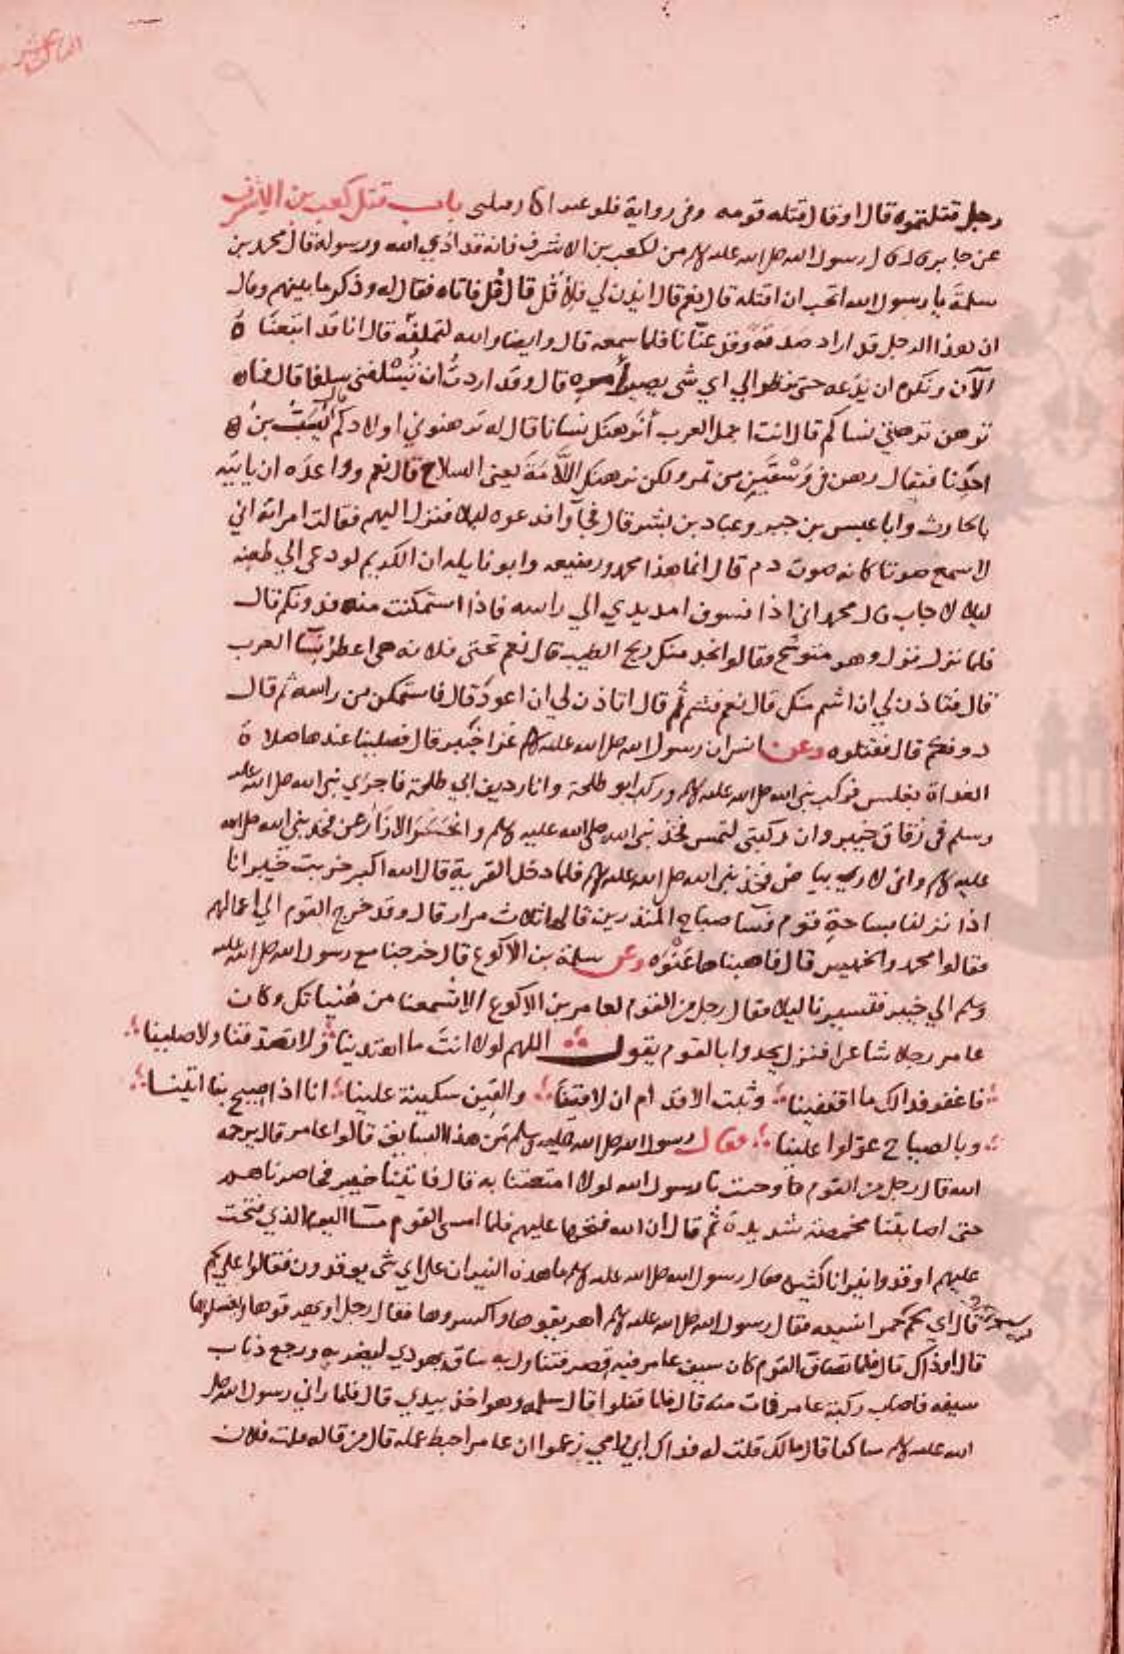 رجل قتلتموه قال او قال قتله قومه وفى رواية فلو غير اكار قتلنى باب قتل كعب بن الاشرف
عن جابر قال قال رسول الله صلى الله عليه وسلم من لكعب بن الاشرف فانه قد اذي الله ورسوله قال محمد بن
سلمة يا رسول الله اتحب ان اقتله قال نعم قال ايذن لي فلأقل قال قل فاتاه فقال له وذكر ما بينهم وقال
ان هذا الرجل قد اراد صدقة وقد عنّانا فلما سمعه قال وايضا والله لتملنّه قال انا قد اتبعناه
الآن ونكره ان ندعه حتى ننظر الي اي شى يصير أمره قال وقد اردتُ ان تُسْلفنى سلفا قال فما
ترهن ترهنني نساكم قال انت اجمل العرب أنرهنك نسانا قال له ترهنوني اولادكم قال يُسَبُّ بن
احدنا فيقال رهن فى وَسْقَين من تمر ولكن نرهنك اللَّأْمَةَ يعنى السلاح قال نعم وواعَدَه ان ياتيَه
بالحارث وابا عبس بن جبر وعباد بن بشر قال فجآوا فدعوه ليلا فنزل اليهم فقالت امراته اني
لاسمع صوتا كانه صوت دم قال انما هذا محمد ورضيعه وابو نايله ان الكريم لو دعى الي طعنه
ليلا لاجاب قال محمد اني اذا فسوف امد يدي الي راسه فاذا استمكنت منه فدونكم قال
فلما نزل نزل وهو متوشح فقالوا نجد منك ريح الطيب قال نعم تحتى فلانه هى اعطر نسا العرب
قال فتاذن لي ان اشم منك قال نعم فشم ثم قال اتاذن لي ان اعود قال فاستمكن من راسه ثم قال
دونكم قال فقتلوه وعن انس ان رسول الله صلى الله عليه وسلم غزا خيبر قال فصلينا عندها صلاة
الغداة بغلس فركب نبى الله صلى الله عليه وسلم وركب ابو طلحة وانا رديف ابي طلحة فاجري نبى الله صلى الله عليه
وسلم فى زقاق خيبر وان ركبتى لتمس فخذ نبى الله صلى الله عليه وسلم وانحسر الازار عن فخذ نبى الله صلى الله
عليه وسلم واني لاري بياض فخذ نبى الله صلى الله عليه وسلم فلما دخل القرية قال الله اكبر خربت خيبر انا
اذا نزلنا بساحة قوم فسآ صباح المنذرين قالها ثلاث مرار قال وقد خرج القوم الي اعمالهم
فقالوا محمد والخميس قال فاصبناها عَنْوَه وعن سلمة بن الاكوع قال خرجنا مع رسول الله صلى الله عليه
وسلم الي خيبر فتسيرنا ليلا فقال رجل من القوم لعامر بن الاكوع الا تُسمعنا من هُنياتك وكان
عامر رجلا شاعرا فنزل يحدوا بالقوم يقول اللهم لولا انت ما اهتدينا ولا تصدقنا ولا صلينا
فاغفر فدا لك ما اقتفينا وثبت الاقدام ان لاقينا والقين سكينة علينا انا اذا صيح بنا اتينا
وبالصياح عولوا علينا فقال رسول الله صلى الله عليه وسلم مَن هذا السايق قالوا عامر قال يرحمه
الله قال رجل من القوم وجبت يا رسول الله لولا امتعتنا به قال فاتينا خيبر فحاصرناهم
حتى اصابتنا مخمصة شديدة ثم قال ان الله فتحها عليهم فلما امسى القوم مسآ اليوم الذي فتحت
عليهم اوقدوا نيرانا كثيرة فقال رسول الله صلى الله عليه وسلم ما هذه النيران على اي شى يوقدون فقالوا على لحم
قال اي لحم حمر انسيه فقال رسول الله صلى الله عليه وسلم اهريقوها واكسروها فقال رجل او يهريقوها ويغسلوها
قال او ذاك قال فلما تصاف القوم كان سيف عامر فيه قصر فتناول به ساق يهودي ليضربه ورجع ذباب
سيفه فاصاب ركبة عامر فمات منه قال فلما قفلوا قال سلمه وهو اخذ بيدي قال فلما راني رسول الله صلى
الله عليه وسلم ساكتا قال مالك قلت له فداك ابي وامي زعموا ان عامرا حبط عمله قال من قاله قلت فلان